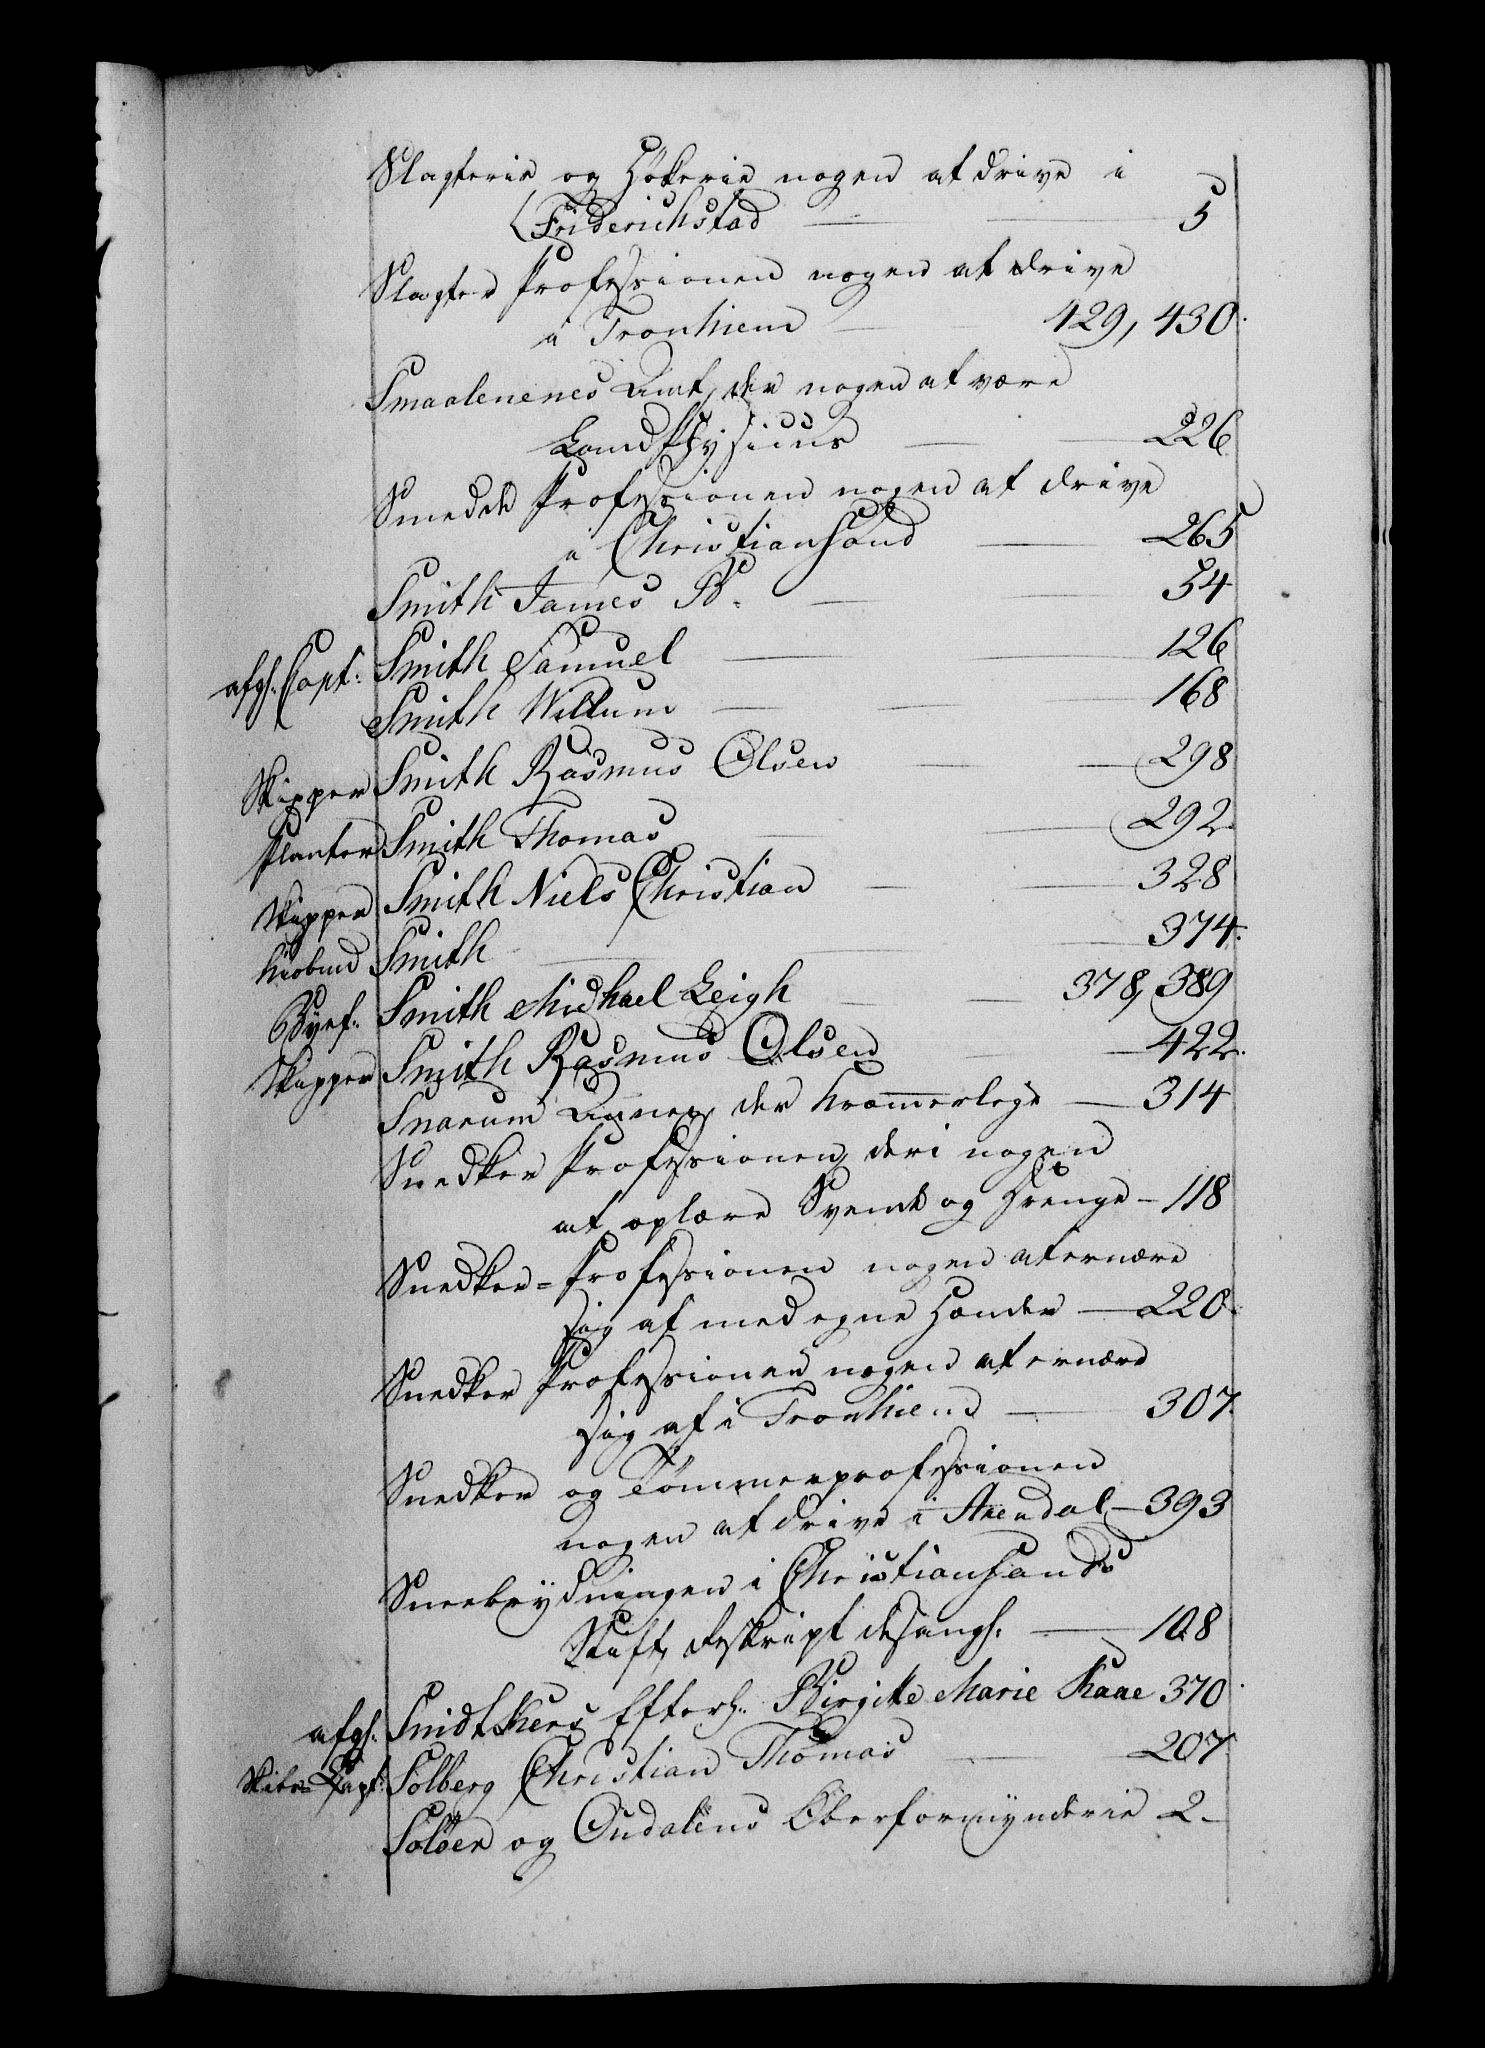 Slagterie og Hökerie nogen at drive i
Friderichstad — 5
Slagter Professionen nogen at drive
i Tronhiem — 429, 430.
Smaalenenes Amt, der nogen at være
Landphysicus — 226
Smedde Professionen nogen at drive
i Christiansand — 265
Smith James P. — 54
afgh. Capt: Smith Samuel — 126
Smith Willum — 168
Skipper Smith Rasmus Olsen — 298
Planter Smith Thomas — 292.
Skipper Smith Niels Christian — 328
Kiøbmd Smith — 374.
Byef: Smith Michael Leigh — 378, 389
Skipper Smith Rasmus Olsen — 422.
Snarum Annex, der Kræmmerleye — 314
Snedker Professionen, deri nogen
at oplære Svende og Drenge — 118
Snedker=Professionen nogen at ernære
sig af med egne Hænder — 220.
Snedker Professionen nogen at ernære
sig af i Tronhiem — 307.
Snedker og Tømmerprofessionen
nogen at drive i Arendal — 393
Sneebrydningen i Christiansands
Stift, Reskript desangl. — 108
afgh. Smidt Skers Efterl. Birgitte Marie Kaae 370.
Skibs-Capt: Solberg Christian Thomas — 207.
Soløer og Oudalens Oberformynderie 2.